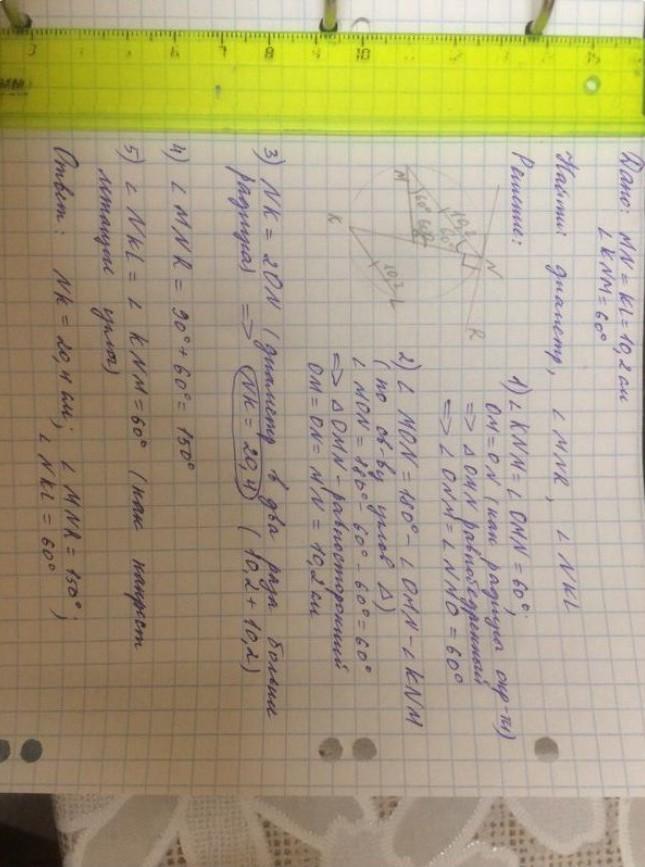 Дано: MN = KL = 10,2 см
∠KNM = 60°
Найти: диаметр, ∠MNR, ∠NKL
Решение:
1) ∠KNM = ∠OMN = 60°;
OM = ON (как радиусы окр-ти)
=> ΔOMN равнобедренный
=> ∠ONM = ∠NMO = 60°
2) ∠MON = 180° - ∠OMN - ∠KNM
(по св-ву углов Δ)
∠MON = 180° - 60° - 60° = 60°
=> ΔOMN - равносторонний
OM = ON = MN = 10,2 см
3) NK = 2ON (диаметр в два раза больше
радиуса) => NK = 20,4 (10,2 + 10,2)
4) ∠MNR = 90° + 60° = 150°
5) ∠NKL = ∠KNM = 60° (как накрест
лежащие углы)
Ответ: NK = 20,4 см; ∠MNR = 150°;
∠NKL = 60°
N
R
M
K
L
10,2
60°
60°
10,2
5
6
7
8
9
10